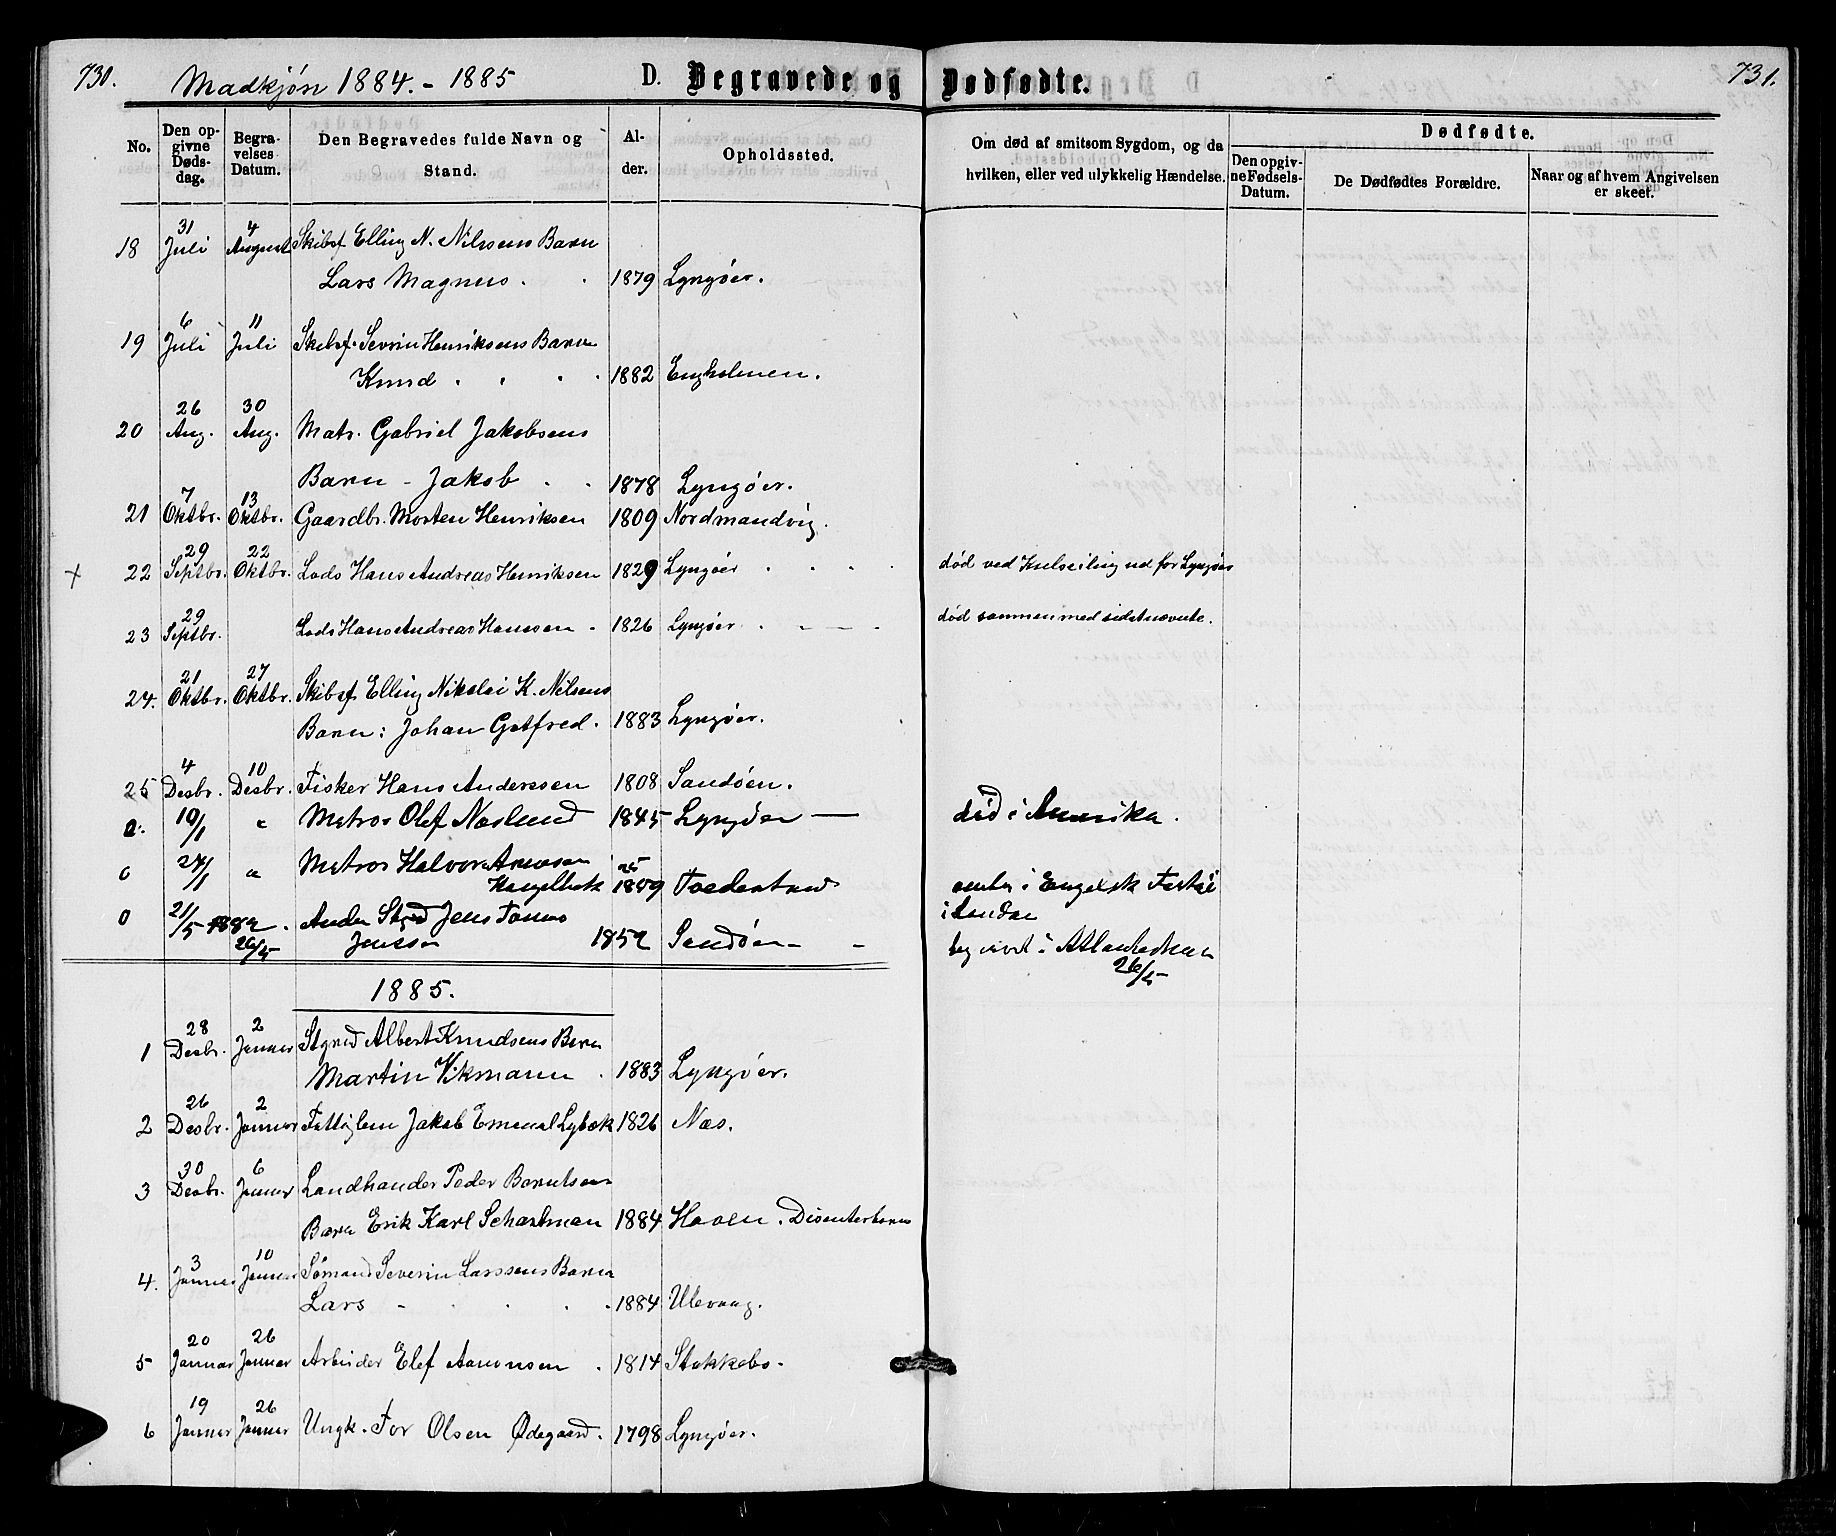 730.
Madkjøn 1884. - 1885
D. Begravede og Dødfødte.
731.
No.
Den opgivne Dødsdag.
Begravelses Datum.
Den Begravedes fulde Navn og Stand.
Alder.
Opholdssted.
Om død af smitsom Sygdom, og da hvilken, eller ved ulykkelig Hændelse.
Dødfødte.
Den opgivne Fødsels-Datum.
De Dødfødtes Forældre.
Naar og af hvem Angivelsen er skeet.
18 31 Juli 4 August Skibsf. Elling N. Nilssens Barn
Lars Magnus . . 1879 Lyngøer.
19 6 Juli 11 Juli Skibsf. Sevrin Henriksens Barn
Knud . . . . 1882 Engholmen.
20 26 Aug. 30 Aug. Matr. Gabriel Jakobsens
Barn - Jakob . . 1878 Lyngøer.
21 7 Oktbr. 13 Oktbr. Gaardbr. Morten Henriksen 1809 Nordmandvig.
+ 22 29 Septbr. 22 Oktbr. Lods Hans Andreas Henriksen 1829 Lyngøer . . . . død ved Kulseiling ud for Lyngøer
23 29 Septbr. Lods Hans Andreas Hanssen . 1826 Lyngøer . - - død sammen med sidstnævnte.
24. 21 Oktbr. 27 Oktbr. Skibsf. Elling Nikolai K. Nilsens
Barn: Johan Gotfred. 1883 Lyngøer.
25 4 Desbr. 10 Desbr. Fisker Hans Anderssen 1808 Sandøen.
0. 19/1 " Matros Olef Næslund 1845 Lyngøer — død i Amerika.
0 24/1 " Matros Halvor
1859 i Engelsk
0 21/5 1882. 26/5 Jens
Jenssen 1852 Sandøen - - i Atlanterhavet
26/5
1885.
1 28 Desbr. 2 Januar Styrmd Albert Knudsens Barn
Martin Vikmann . 1883 Lyngøer.
2 26 Desbr. 2 Januar Fattiglem Jakob Emanuel Lybæk 1826 Næs.
3 30 Desbr. 6 Januar Landhandler Peder Berntsens
Barn Erik Karl 1884 Haven. Disenterbarn
4. 3 Januar 10 Januar Sømand Severin Larssens Barn
Lars - . . . . 1884 Ulevaag.
5 20 Januar 26 Januar Arbeider Elef Aanonsen . 1814 Stokkebo.
6 19 Januar 26 Januar Ungk. Tor Olsen Ødegaard. 1798 Lyngøer.